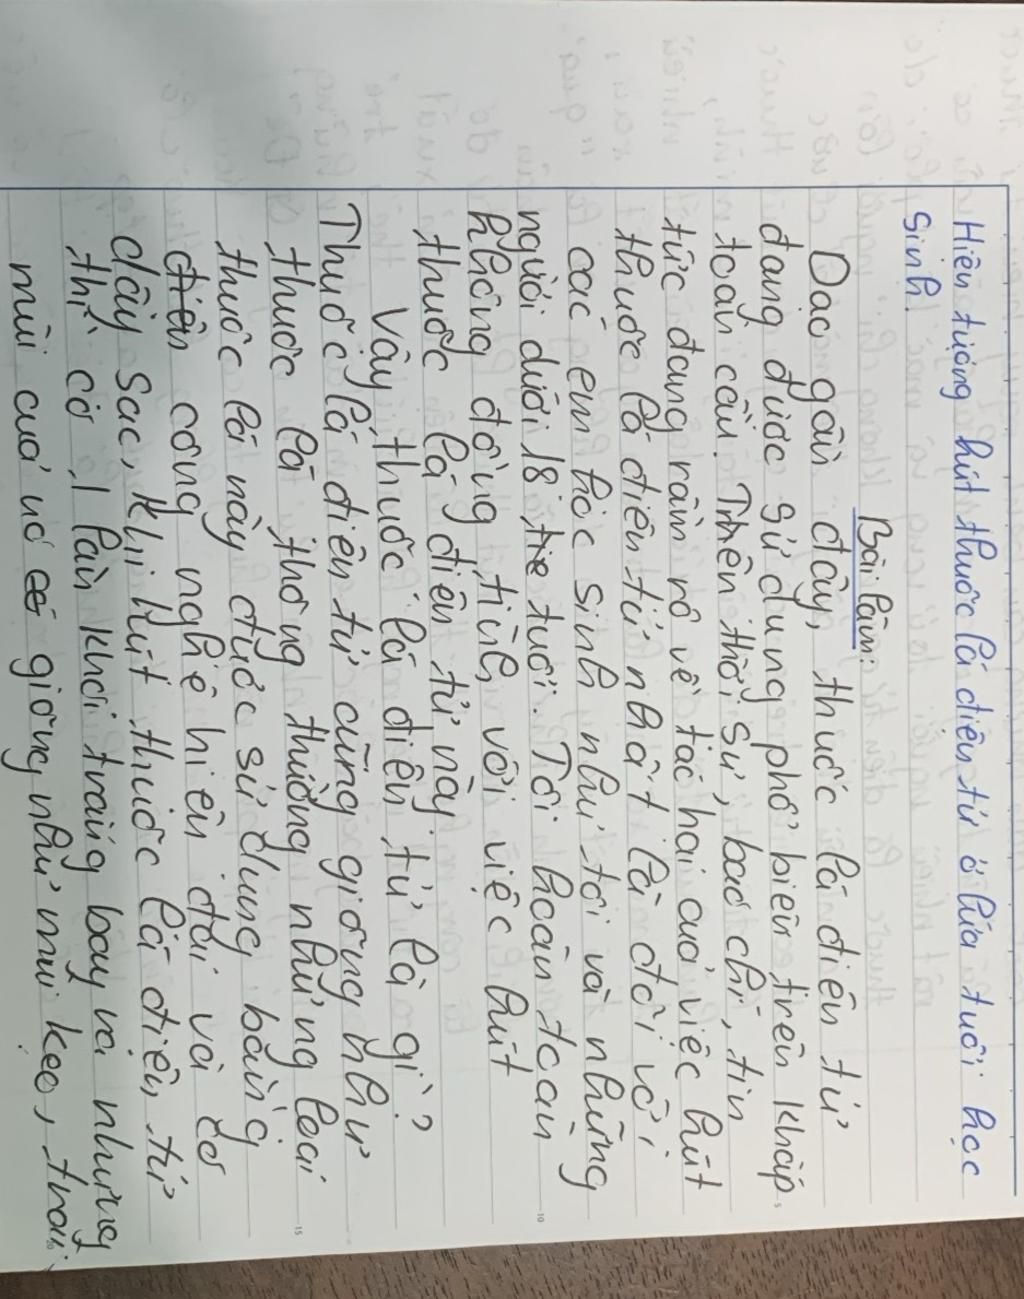 Hiện tượng hút thuốc lá điện tử ở lứa tuổi học
sinh.
Bài làm:
Dạo gần đây, thuốc lá điện tử
đang được sử dụng phổ biến trên khắp
toàn cầu. Trên thời sự, báo chí, tin
tức đang rầm rộ về tác hại của việc hút
thuốc lá điện tử nhất là đối với
các em học sinh như tôi và những
người dưới 18 tuổi. Tôi hoàn toàn
không đồng tình với việc hút
thuốc lá điện tử này.
Vậy, thuốc lá điện tử là gì?
Thuốc lá điện tử cũng giống như
thuốc lá thông thường nhưng loại
thuốc lá này được sử dụng bằng
công nghệ hiện đại và có
dây sạc, khi hút thuốc lá điện tử
thì cờ 1 làn khói trắng bay ra nhưng
mùi của nó giống như mùi kẹo, trái